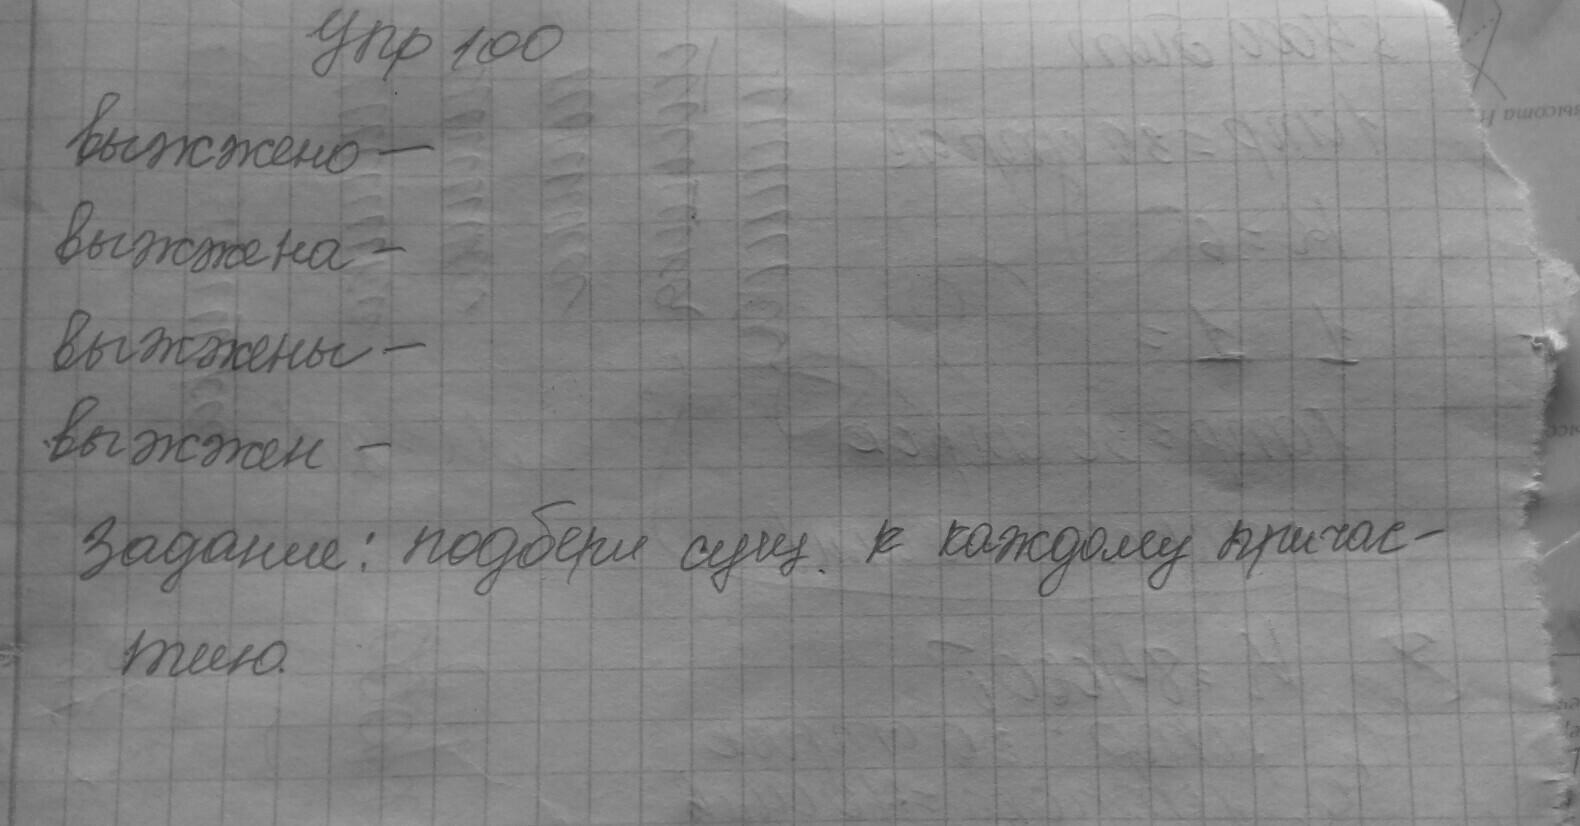 Упр 100
выжжено —
выжжена —
выжжены —
выжжен —
Задание: подбери сущ. к каждому причас-
тию.